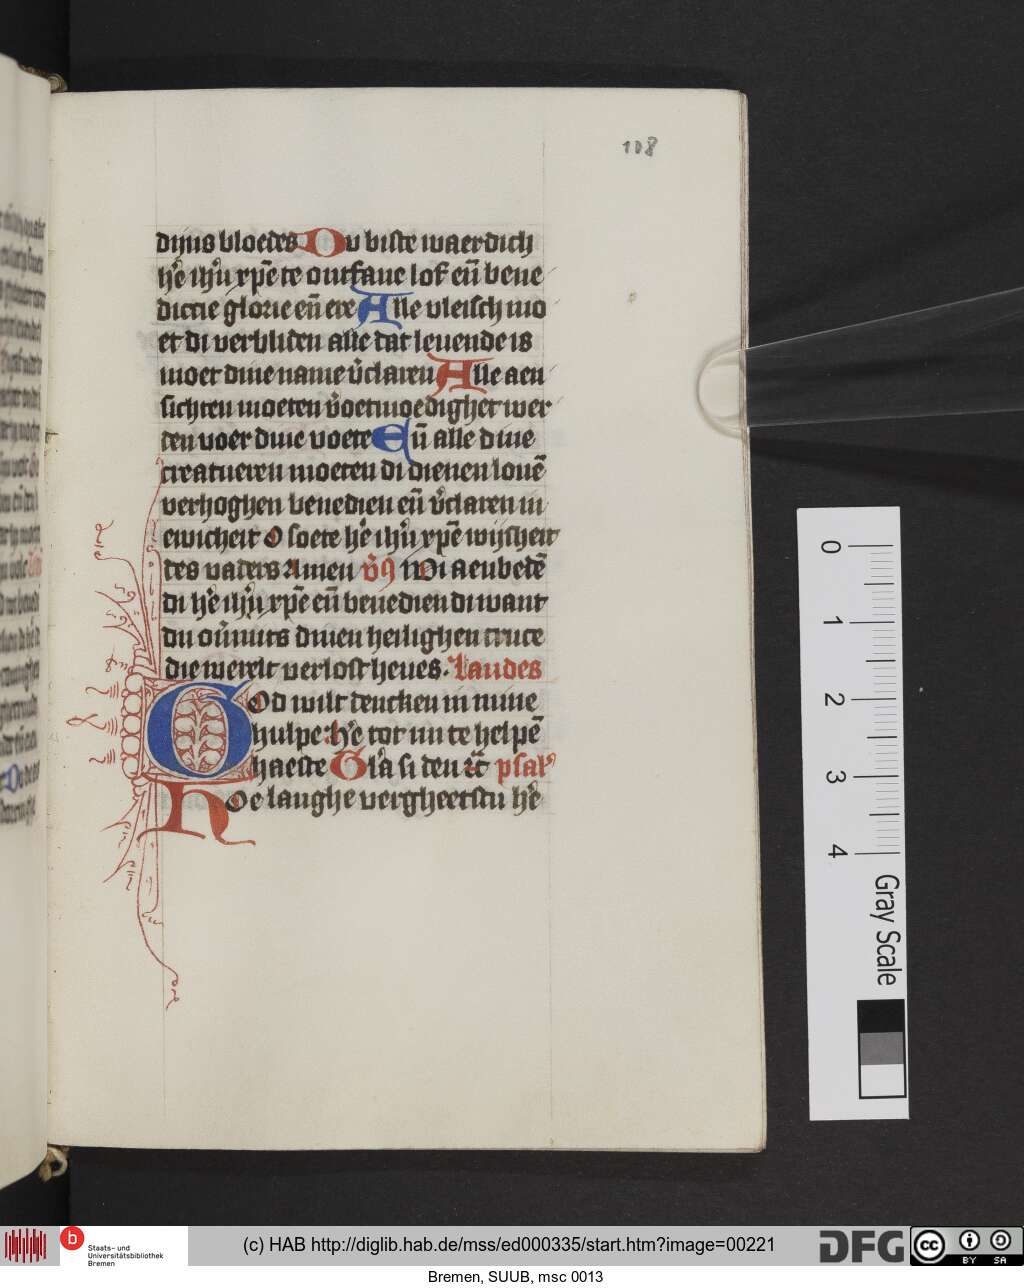 108
dijns bloedes Du biste waerdich
he͞ ihu͞ xp͞e te ontfaue lof en͞ bene
dictie glorie en͞ ere Alle vleisch mo
et di verbliden alle dat leuende is
moet dine name v͞claren Alle aen
sichten moeten v͞oetmoedighet wer
den voer dine voete En͞ alle dine
creatueren moeten di dienen louē
verhoghen benedien en͞ v͞claren in
ewicheit O soete he͞ ihu͞ xp͞e wijsheit
des vaders Amen v͞s Wi aenbedē
di he͞ ihu͞ xp͞e en͞ benedien di want
du ou͞mits dinen heilighen cruce
die werelt verlost heues. Laudes
God wilt dencken in mine
hulpe: he͞ tot mi te helpē
haeste Gl͞a si den ec͞ psal͛
Hoe langhe vergheetstu he͞
0
1
2
3
4
Gray Scale
b
Staats- und
Universitätsbibliothek
Bremen
(c) HAB http://diglib.hab.de/mss/ed000335/start.htm?image=00221
DFG
cc
BY
SA
Bremen, SUUB, msc 0013